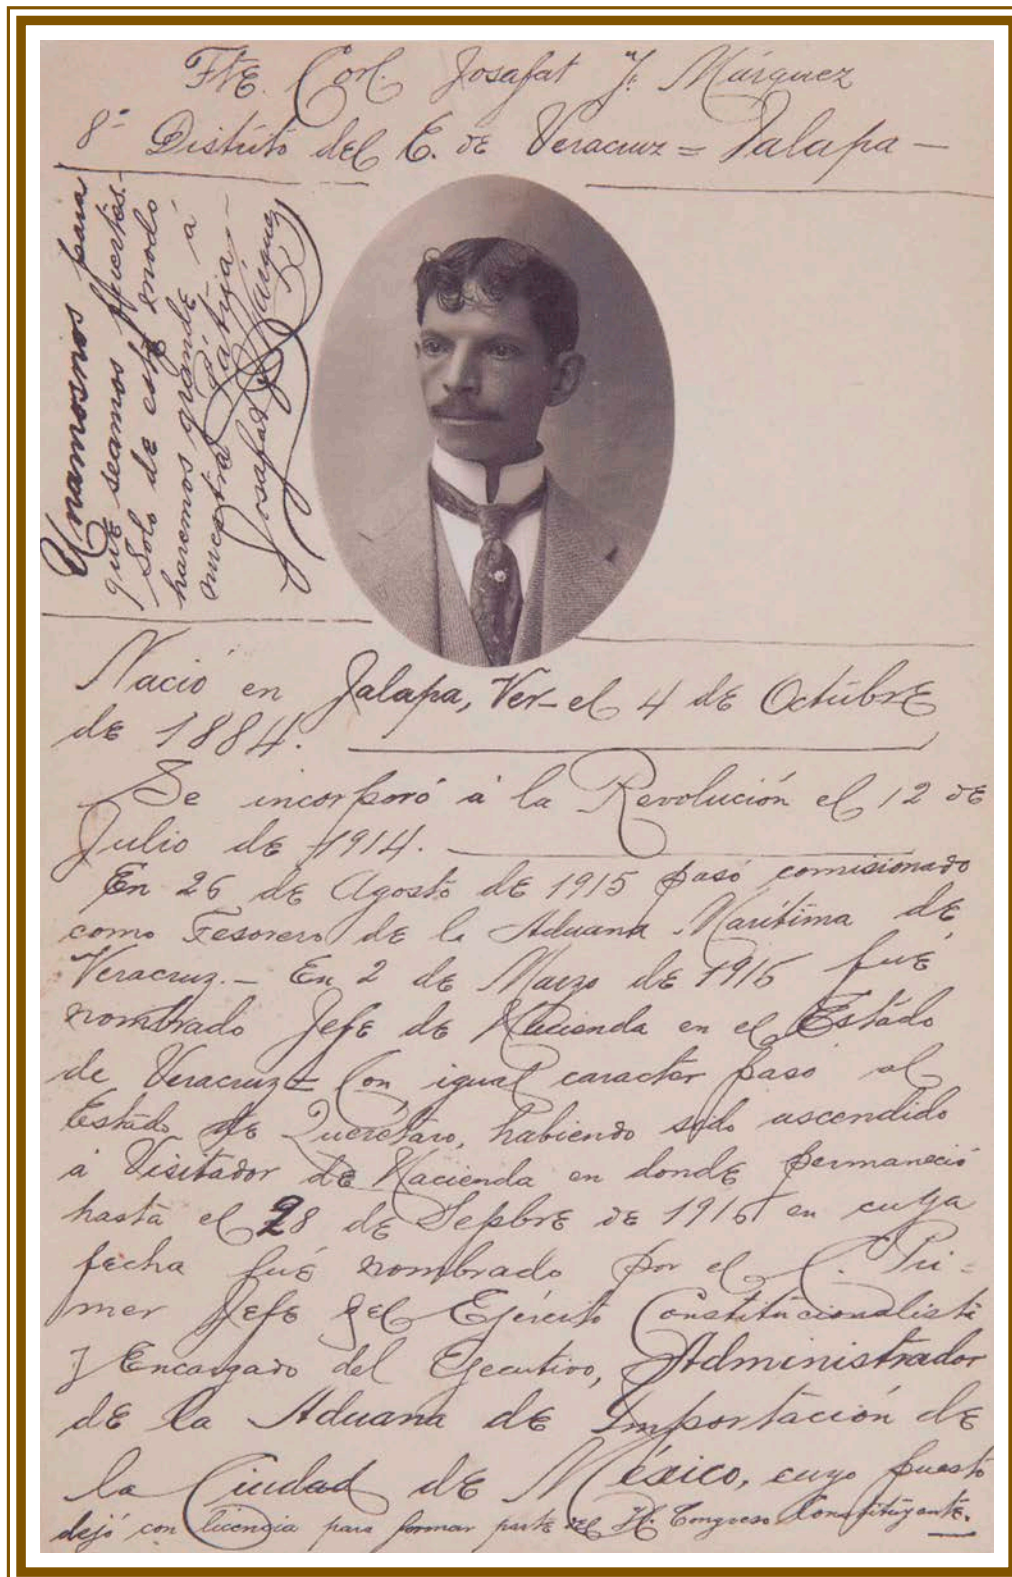 FtE. Corl. Josafat F. Márquez
8º Distrito del E. de Veracruz = Jalapa —
Unamosnos para
que seamos fuertes.-
Solo de este modo
haremos grande á
nuestra Pátria -
Josafat F. Márquez
Nació en Jalapa, Ver- el 4 de Octúbre
de 1884.
Se incorporó á la Revolución el 12 de
Julio de 1914.
En 26 de Agosto de 1915 pasó comisionado
como Tesorero de la Aduana Marítima de
Veracruz. - En 2 de Marzo de 1916 fué
nombrado Jefe de Hacienda en el Estado
de Veracruz = Con igual caracter pasó al
Estado de Querétaro, habiendo sido ascendido
á Visitador de Hacienda en donde permaneció
hasta el 28 de Sepbre de 1916 en cuya
fecha fué nombrado por el C. Pri=
mer Jefe del Ejército Constitucionalista
y Encargado del Ejecutivo, Administrador
de la Aduana de Importación de
la Ciudad de México, cuyo puesto
dejó con licencia para formar parte del H. Congreso Constituyente.